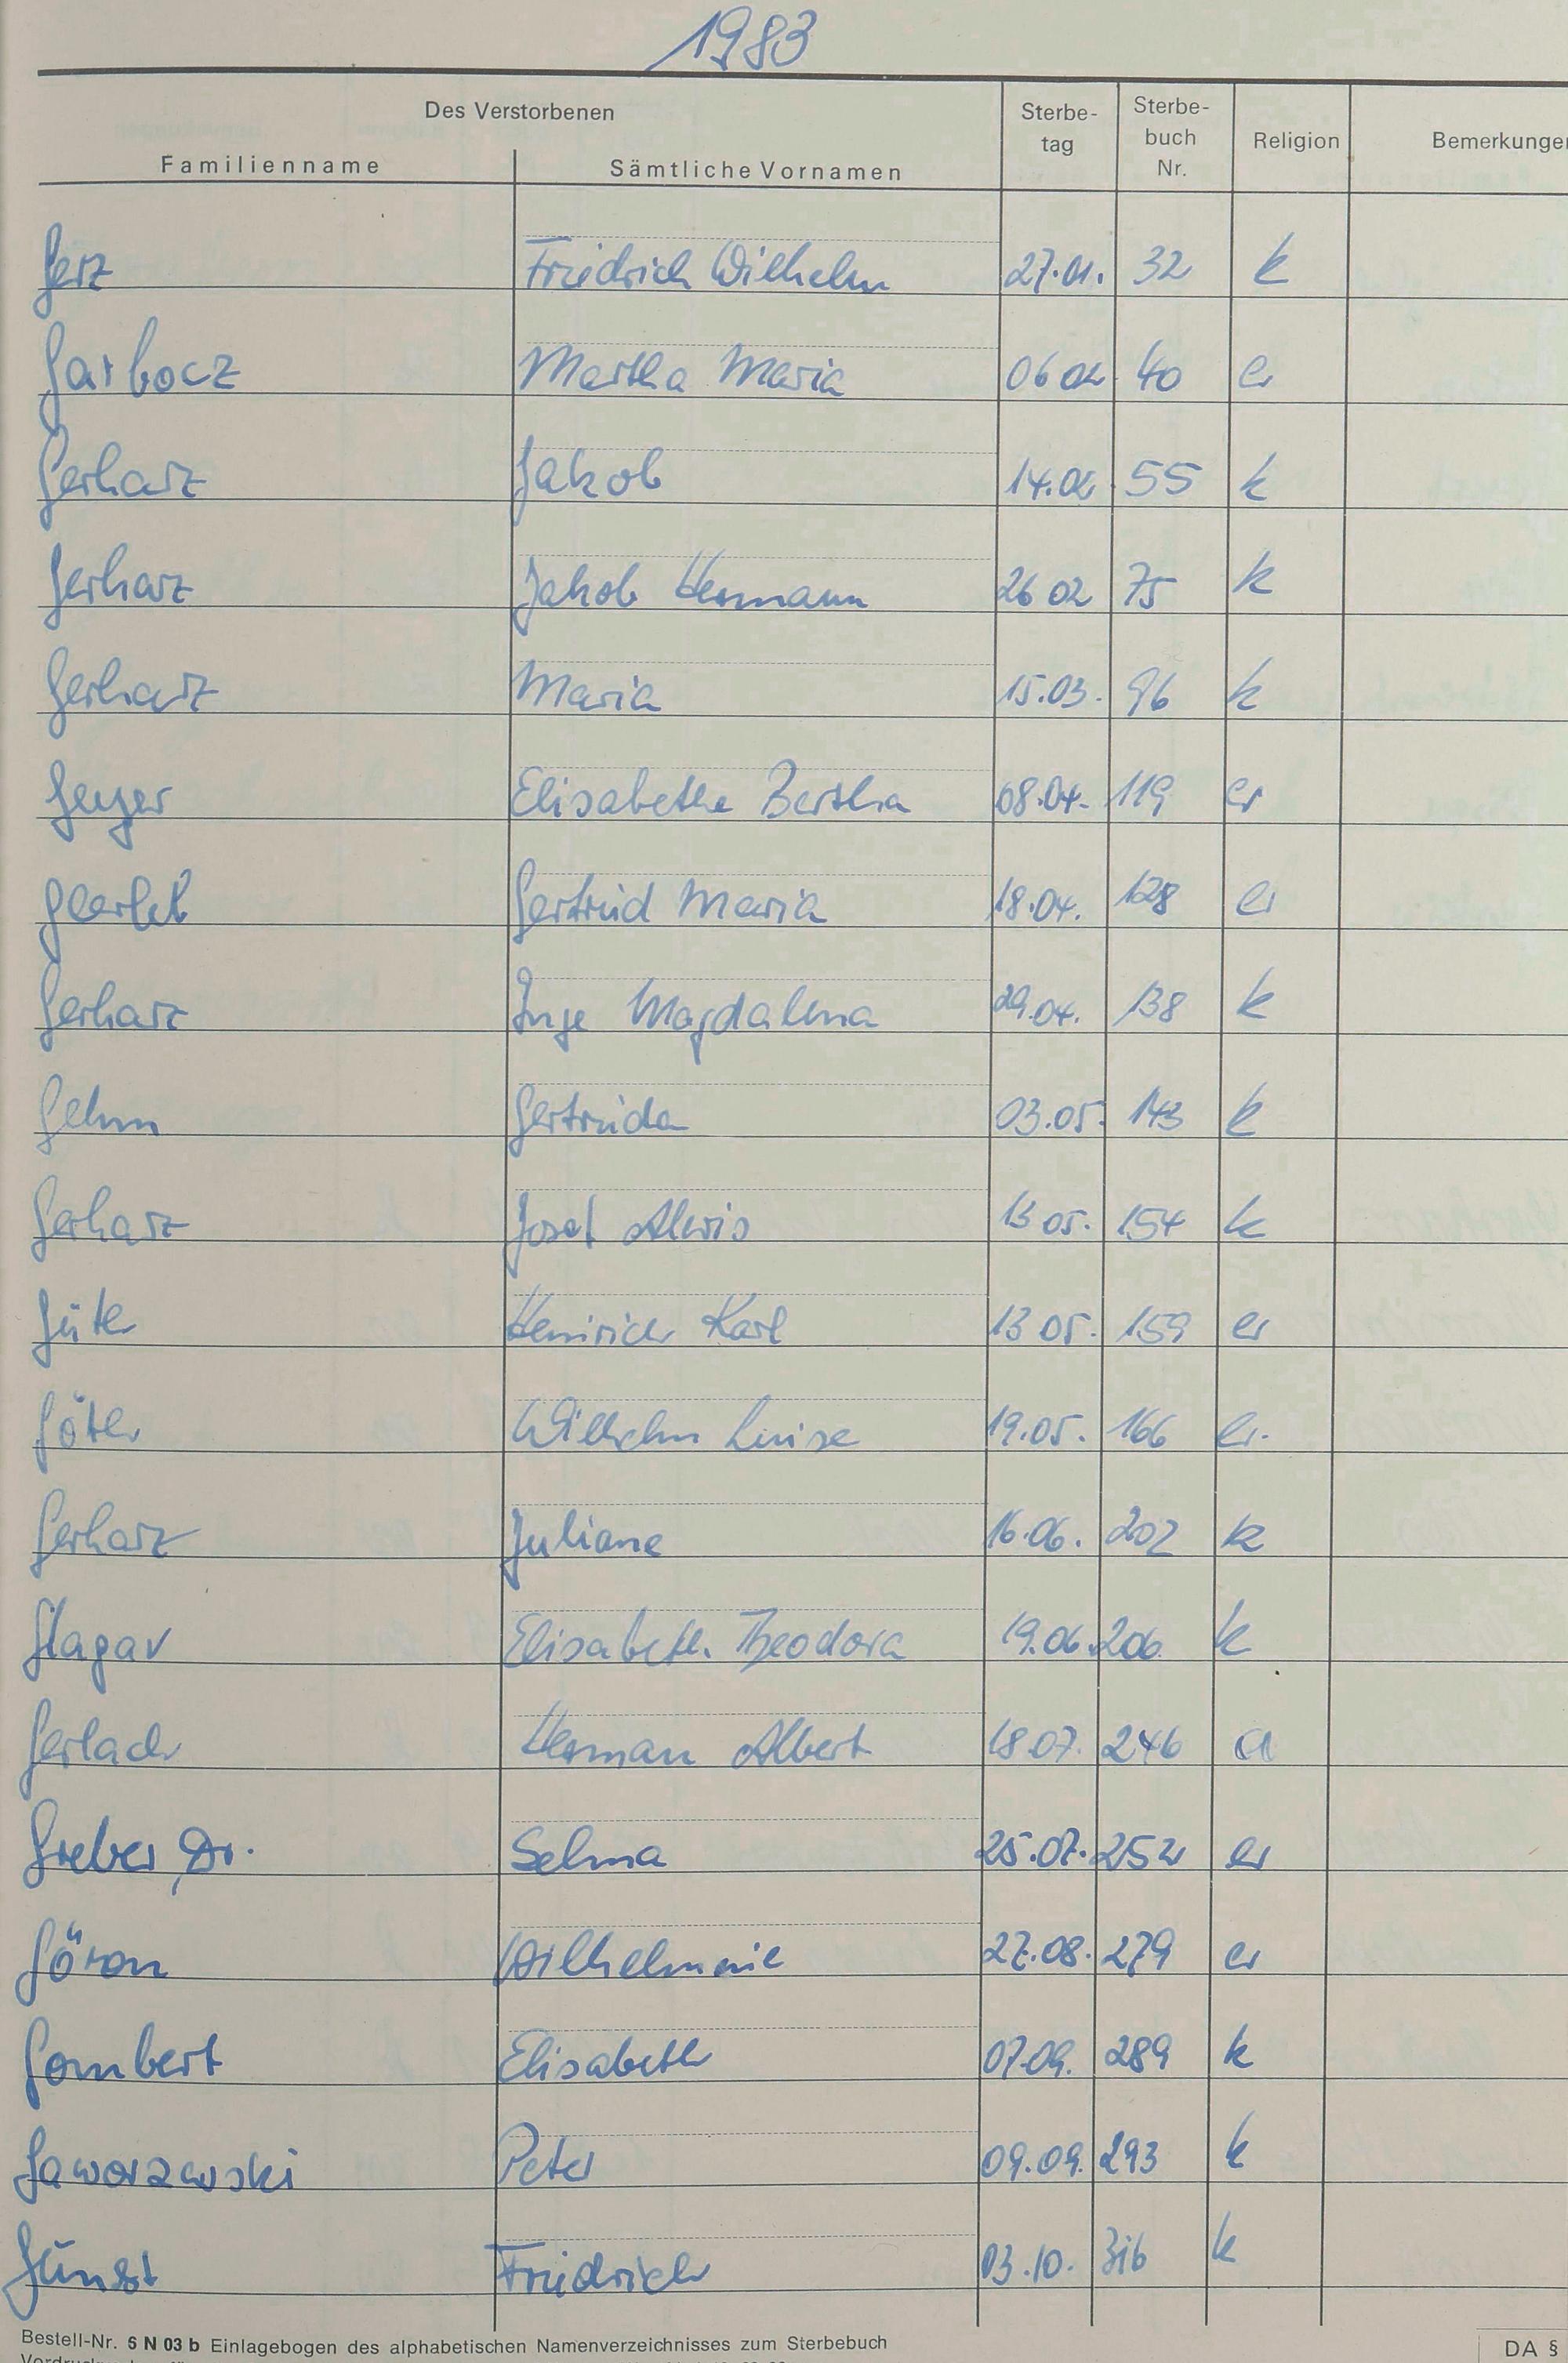 1983
Des Verstorbenen
Familienname Sämtliche Vornamen Sterbe-tag Sterbe-buch Nr. Religion Bemerkungen
Gerz Friedrich Wilhelm 27.01. 32 k
Garbocz Martha Maria 06 02 40 ev
Gerharz Jakob 14.02 55 k
Gerharz Jakob Hermann 26 02 75 k
Gerharz Maria 15.03. 96 k
Geyer Elisabethe Bertha 08.04. 119 ev
Gertrud Maria 18.04. 128 ev
Gerharz Inge Magdalena 29.04. 138 k
Gehm Gertruda 03.05. 143 k
Gerharz Josef Alwis 13 05. 154 k
Güte Heinrich Karl 13 05. 159 ev
Göter Wilhelm Luise 19.05. 166 ev.
Gerharz Juliane 16.06. 202 k
Glagav Elisabeth. Theodora 19.06. 206 k
Gerlach Herman Albert 18.07. 246 a
Greber, Dr. Selma 25.07. 252 ev
Göron Wilhelmine 27.08. 279 ev
Gombert Elisabeth 07.09. 289 k
Gaworzewski Peter 09.09. 293 k
Günst Friedrich 03.10. 316 k
Bestell-Nr. 6 N 03 b Einlagebogen des alphabetischen Namenverzeichnisses zum Sterbebuch
DA §